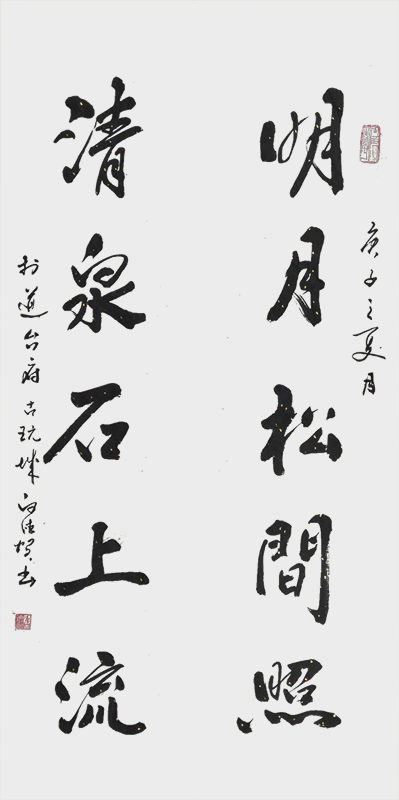 庚子之夏月
明月松間照
清泉石上流
於道台府古玩城 书